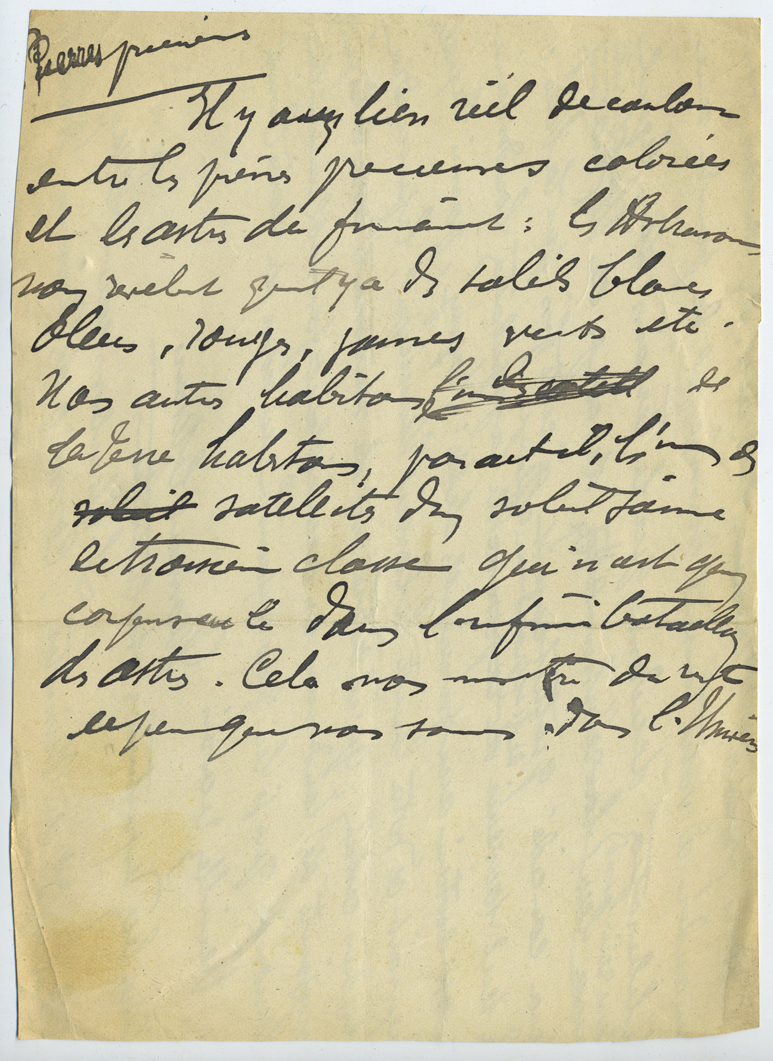 Pierres précieuses
Il y a un lien réel de couleur
entre les pierres précieuses colorées
et les astres du firmament : les Astronomes
nous révèlent qu'il y a des soleils blancs
bleus, rouges, jaunes verts etc.
Nos autres habitons de
la Terre habitons, parait-il, l'un des
soleil satellites d'un soleil jaune
de troisième classe qui n'est qu'un
corpuscule dans l'infini bataillon
des astres. Cela nous montre du reste
le peu que nous sommes dans l'Univers